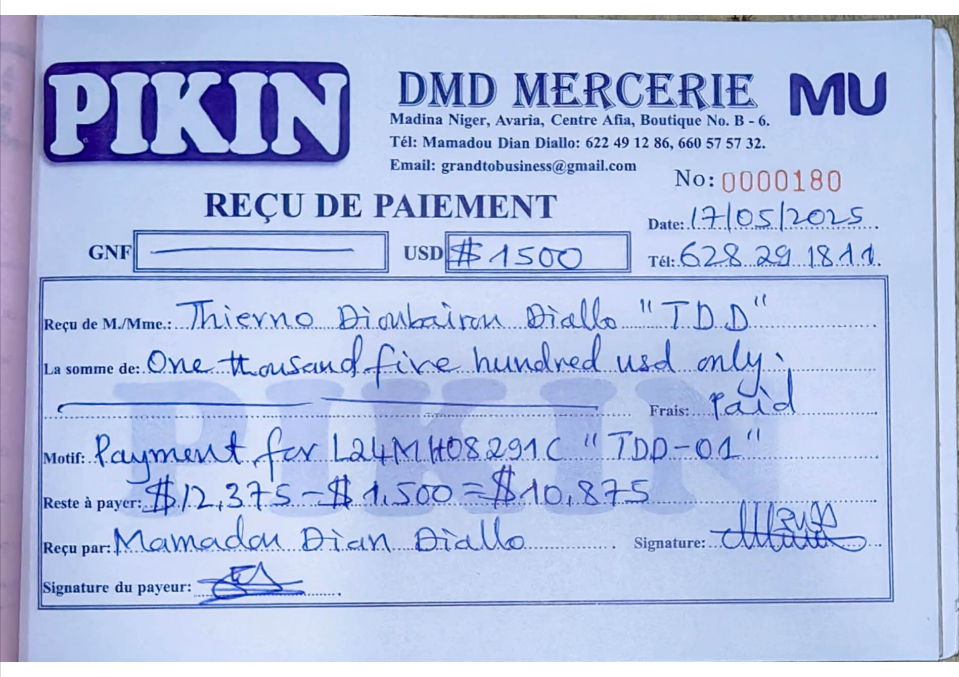 PIKIN
DMD MERCERIE
MU
Madina Niger, Avaria, Centre Afia, Boutique No. B - 6.
Tél: Mamadou Dian Diallo: 622 49 12 86, 660 57 57 32.
Email: grandtobusiness@gmail.com
No: 0000180
REÇU DE PAIEMENT
Date: 17/05/2025
GNF
USD $ 1500
Tél: 628 29 18 11
Reçu de M./Mme.: Thierno Dioubairou Diallo "TDD"
La somme de: One thousand five hundred usd only.
Frais: Paid
Motif: Payment for L24MH08291C "TDD-01"
Reste à payer: $12,375 - $1,500 = $10,875
Reçu par: Mamadou Dian Diallo
Signature:
Signature du payeur:
PIKIN